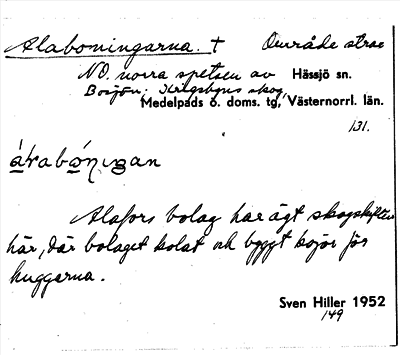 Alaboningarna. † Område strax
NO. norra spetsen av Hässjö sn.
Medelpads ö. doms. tg, Västernorrl. län.
131.
Alafors bolag har ägt skogskiften
här, där bolaget kolat och byggt kojor för
huggarna.
Sven Hiller 1952
149